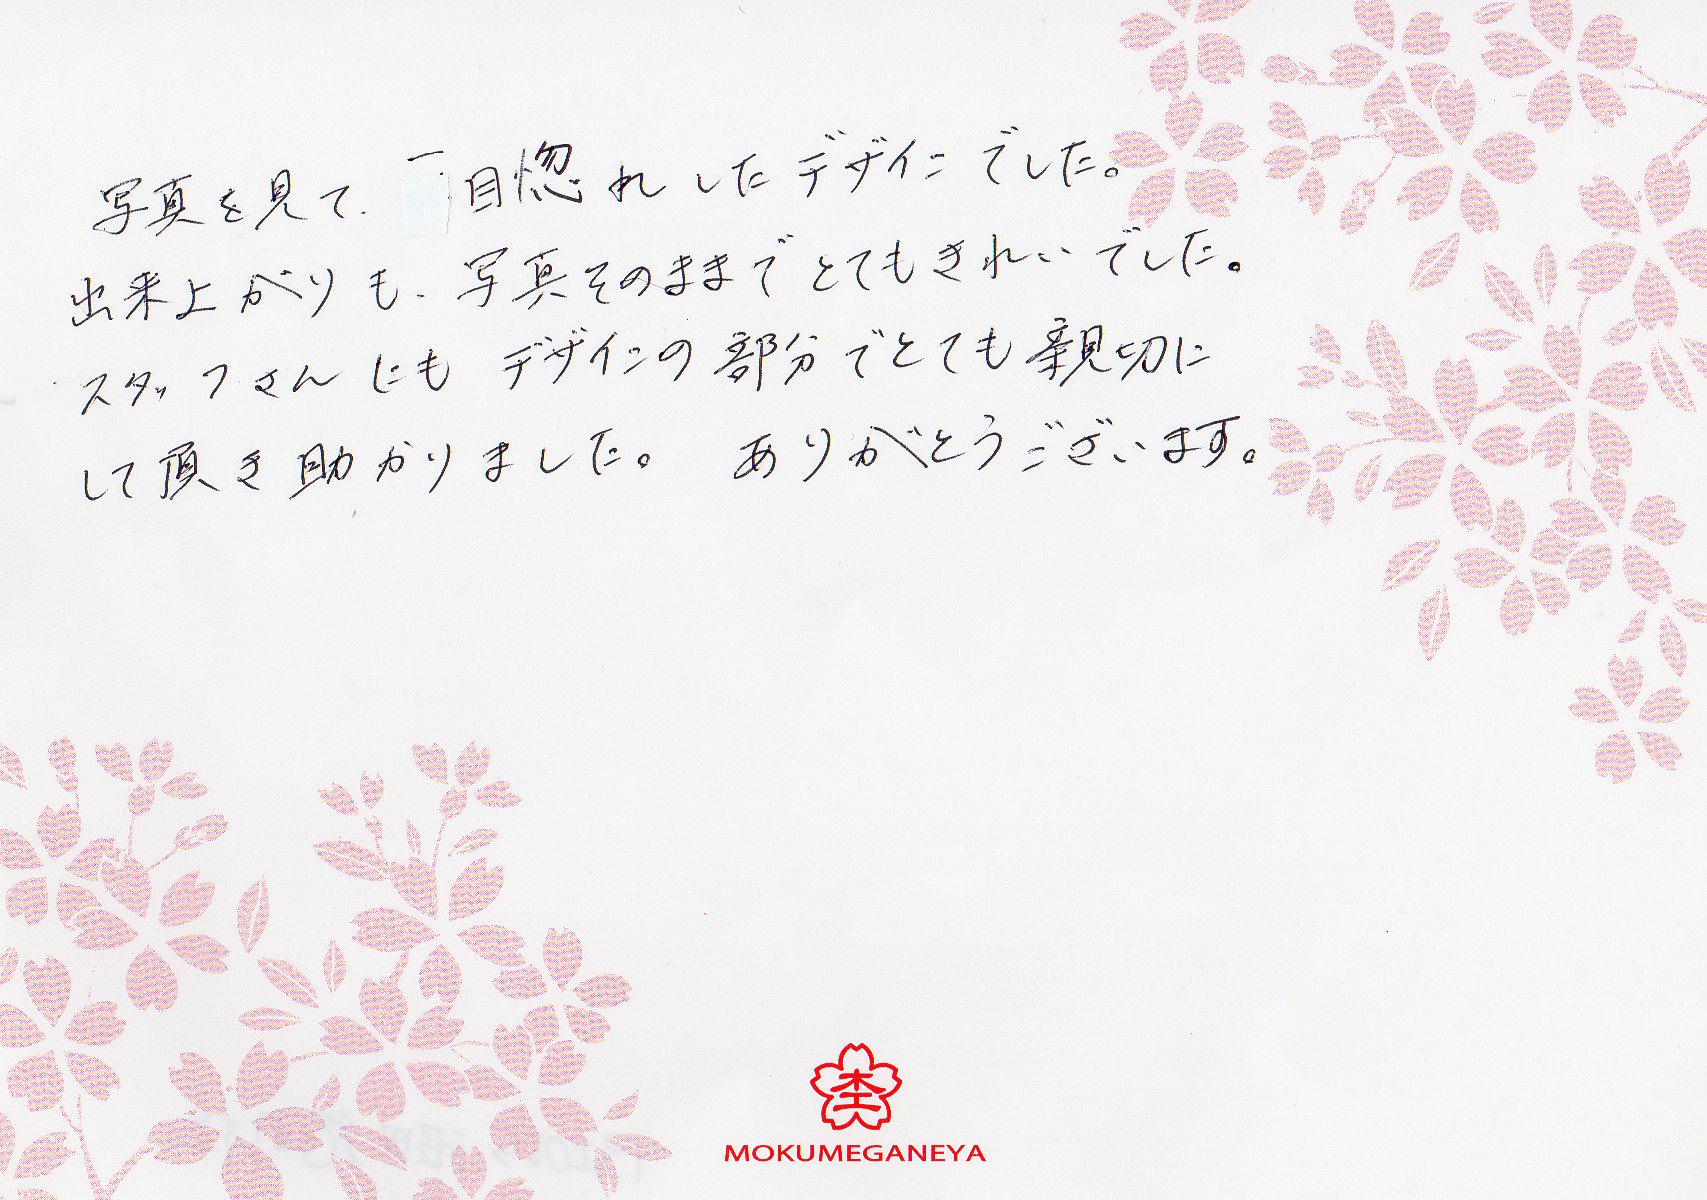 写真を見て、一目惚れしたデザインでした。
出来上がりも、写真そのままでとてもきれいでした。
スタッフさんにもデザインの部分でとても親切に
して頂き助かりました。 ありがとうございます。
MOKUMEGANEYA